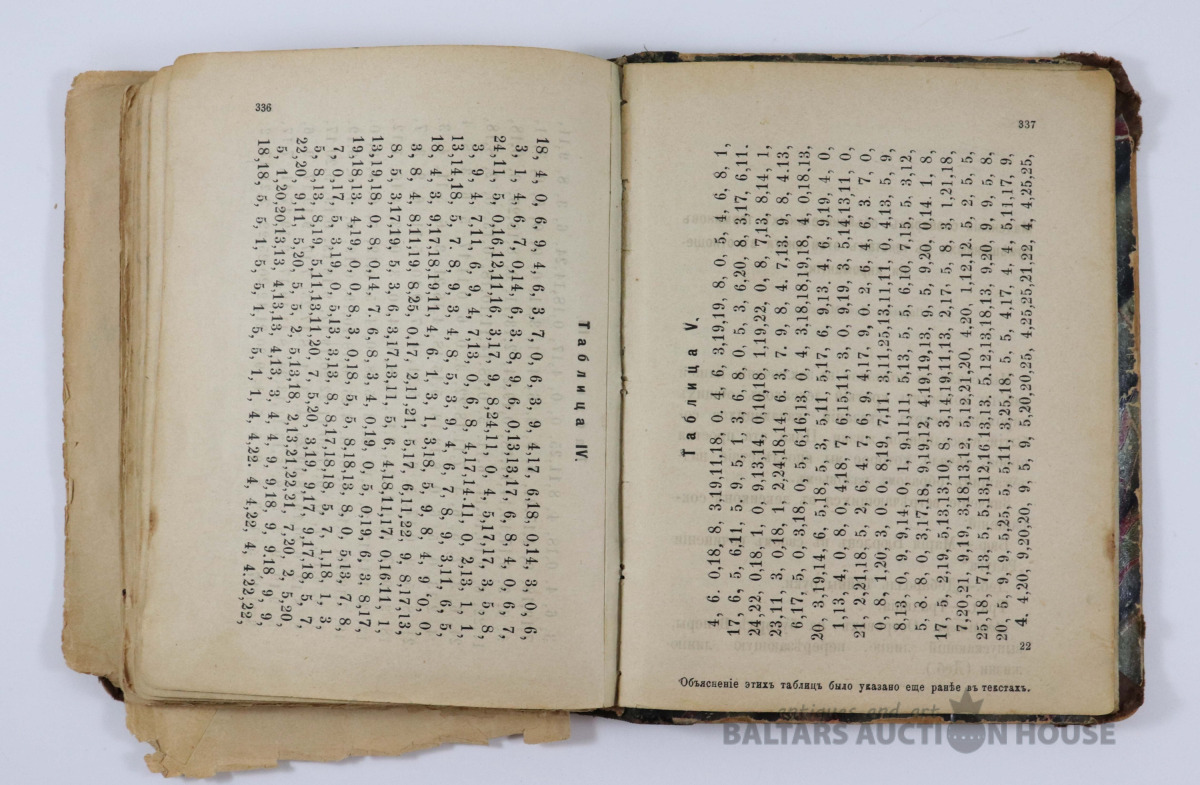 336
Таблица IV.
18, 4, 0, 6, 9, 4, 6, 3. 7, 0, 6, 3, 9, 4,17, 6,18, 0,14, 3, 0, 6,
3, 1, 4, 6, 7, 0,14, 6, 3. 8, 9, 6, 0,13,13,17, 6, 8, 4, 0, 6, 7,
24,11, 5, 0,16,12,11,16, 3,17, 9, 8,24,11, 0, 4, 5,17,17, 3, 5, 8,
3, 9, 4, 7,11, 6, 9, 4, 7,13, 0, 6, 8, 4,17,14.11, 0, 2,13, 1, 1,
13,14,18, 5, 7. 8, 9, 3, 4, 8, 5, 3, 9, 4, 6, 7, 8, 9, 3,11, 6, 5,
18, 4, 3, 9,17,18,19,11, 4, 6, 1, 3, 1, 3,18, 5, 9, 8, 4, 9, 0, 0,
3, 8, 4, 8,11,19, 8,25, 0,17, 2,11,21, 5,17, 6,11,22, 9, 8,17,13,
8, 5, 3,17,19, 5, 3, 6, 3,17,13,11, 5, 6, 4,18,11,17, 0,16.11, 1,
13,19,18, 0, 8, 0,14, 7. 6, 8, 3, 4, 0,19, 0, 5, 0,19, 6, 3, 8,17,
19,18,13. 4,19, 0, 0, 8, 3, 0,18, 5, 5, 8,18,13, 8, 0, 5,13, 7, 8,
7, 0,17, 5, 3,19, 0, 5,13, 3,13, 8, 8,17,18,18, 5, 7, 1,18, 1, 3,
5, 8,13, 8,19, 5,11,13,11,20, 7, 5,20, 3,19, 9,17, 9,17.18, 5, 7,
22,20, 9,11, 5,20, 5, 5, 2, 5,13,18, 2,13,21,22,21, 7,20, 2, 5,20,
5, 1,20,20,13,13, 4,13,13, 4,13, 3, 4, 4, 9, 9,18, 9, 9,18, 9, 9,
18,18, 5, 5, 1, 5, 5, 1, 5, 5, 1, 1, 4, 4,22. 4, 4,22, 4, 4.22,22,
337
Таблица V.
4, 6. 0,18,18, 8, 3,19,11,18, 0. 4, 6, 3,19,19, 8, 0, 5, 4, 6, 8, 1,
17, 6, 5, 6,11, 5, 9, 5, 1, 3, 6, 8, 0, 5, 3, 6,20, 8, 3,17, 6,11.
24,22, 0,18, 1, 0, 9,13,14, 0,10,18, 1,19,22, 0, 8, 7,13, 8,14, 1,
23,11, 3, 0,18, 1, 2,24,18,14, 6. 3, 7. 9, 8, 4. 7,13. 9, 8, 4.13,
6,17, 5, 0, 3,18, 0, 5, 6,16,13, 0, 4, 3,18,18,19,18, 4, 0,18.13,
20, 3,19,14, 6, 5,18, 5, 3, 5,11, 5,17, 6, 9,13. 4, 6, 9,19, 4, 0,
1,13, 4, 0, 8, 0, 4,18, 7, 6,15,11, 3, 0, 9,19, 3, 5,14,13,11, 0,
21, 2,21,18, 5, 2, 6, 4, 7, 6, 9, 4,17, 9, 0. 2, 6, 4, 6, 3. 7, 0,
0, 8, 1,20, 3, 0, 0. 8,19, 7,11. 3,11,25,13,11,11, 0, 4,13, 5, 9,
8,13, 0, 9, 9,14, 0, 1, 9,11,11, 5,13, 5, 5, 6,10, 7,15, 5, 3,12,
5, 8. 8, 0, 3,17.18, 9,19,12, 4,19,19,13, 9, 5, 9,20, 0,14. 1, 8,
17, 5, 2,19, 5,13,13,10, 8, 3,14,19,11,13, 2,17, 5, 8, 3, 1,21,18,
7,20,21, 9,19, 3,18,13,12, 5,12,21,20, 4,20, 1,12,12. 5, 2, 5, 5,
25,18, 7,13, 5, 5,13,12,16,13,13, 5,12,13,18,13, 9,20, 9, 9, 5, 8,
20, 5, 9, 9, 5,25, 5, 5,11, 3,25,18, 5, 5, 4,17, 4, 4, 5,11,17, 9,
4, 4,20, 9,20,20, 9, 5, 9, 5,20,20,25, 4,25,25,21,22, 4, 4,25,25,
22
Объясненіе этихъ таблицъ было указано еще ранѣе въ текстахъ.
antiques and art
BALTARS AUCTION HOUSE